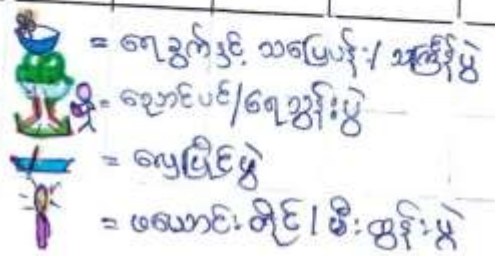 = ရေခွက်နှင့် သပြေပန်း/ သင်္ကြန်ပွဲ
= ညောင်ပင်/ရေသွန်းပွဲ
= လှေပြိုင်ပွဲ
= ဖယောင်းတိုင်/မီးထွန်းပွဲ